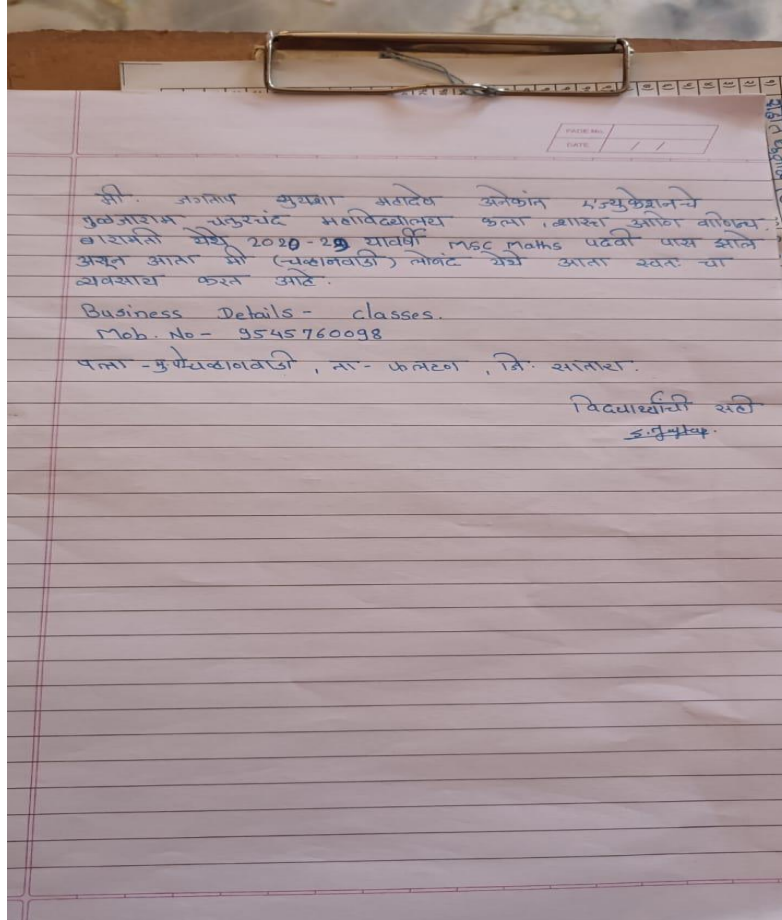 PAGE No.
DATE / /
मी. जगताप सुयशा महादेव अनेकांत एज्युकेशनचे
तुळजाराम चतुरचंद महाविद्यालय कला, शास्त्र आणि वाणिज्य
बारामती येथे 2020-21 यावर्षी MSC Maths पदवी पास झाले
असून आता मी (चव्हाणवाडी) लोणंद येथे आता स्वतः चा
व्यवसाय करत आहे.
Business Details - classes.
Mob. No - 9545760098
पत्ता - , ता - फलटण, जि. सातारा.
विद्यार्थ्यांची सही